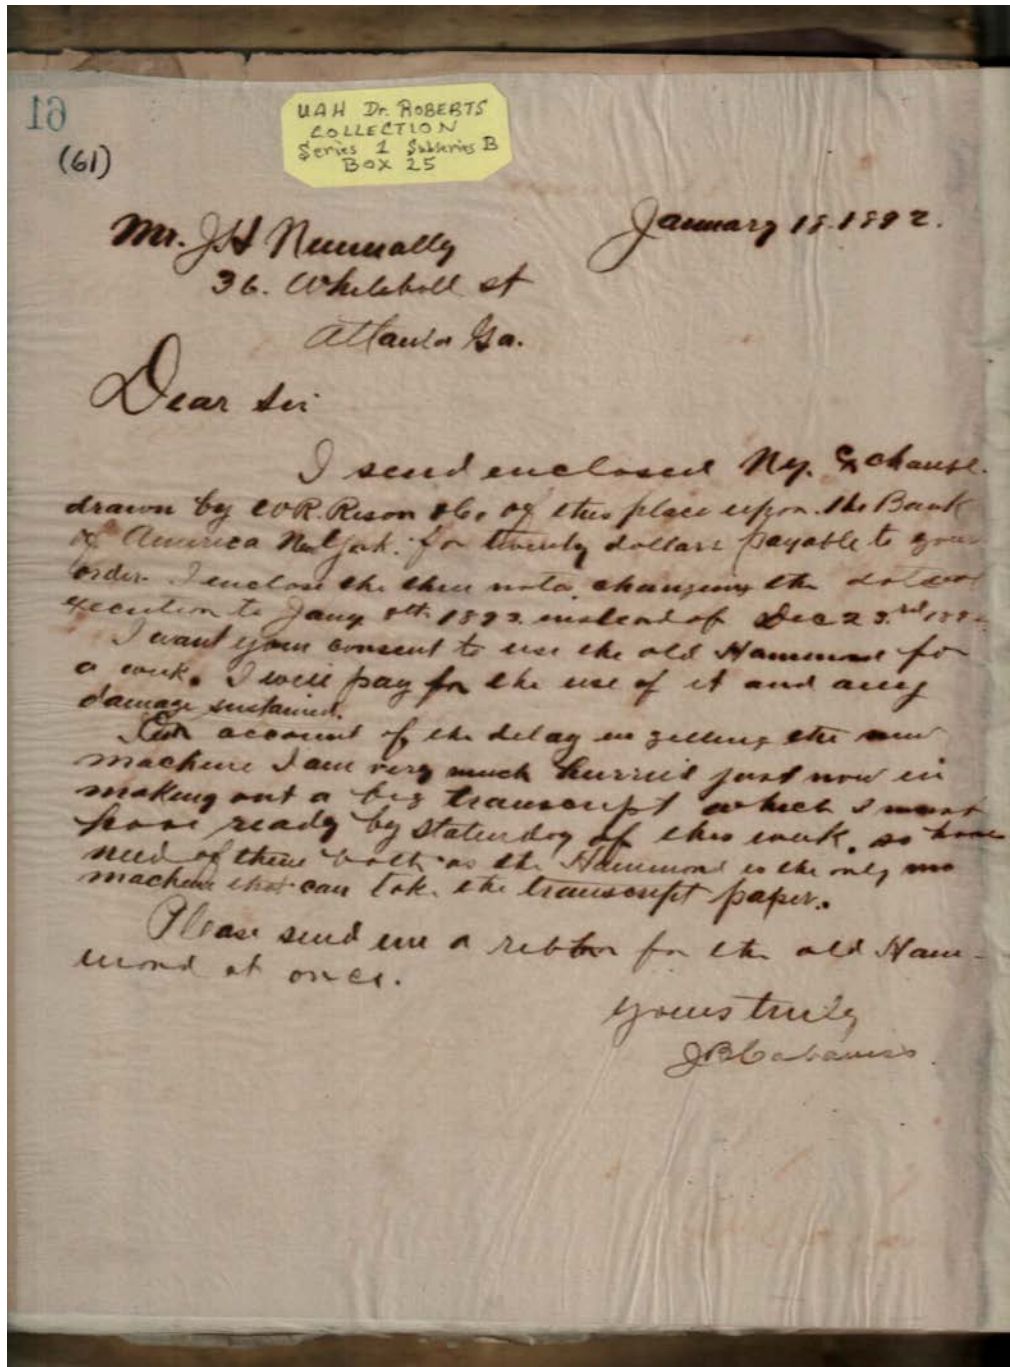 61
(61)
UAH Dr. ROBERTS
COLLECTION
Series 1 Subseries B
BOX 25
January 18. 1892.
Mr. JH Nunnally
36. Whitehall st
Atlanta Ga.
Dear Sir
I send enclosed Ny. Exchange
drawn by WR. Rison & Co of this place upon the Bank
of America New York. for twenty dollars payable to your
order. I enclose the three note, changing the date of
execution to Jany 8th 1892 instead of Dec 23rd 189
I want your consent to use the old Hammond for
a week. I will pay for the use of it and any
damage sustained.
On account of the delay in getting the new
machine I am very much hurried just now in
making out a big transcript which I must
have ready by Staturday of this week, so have
need of them both as the Hammond is the only
machine that can take the transcript paper.
Please send me a ribbon for the old Ham-
mond at once.
Yours truly
JB Cabaniss.